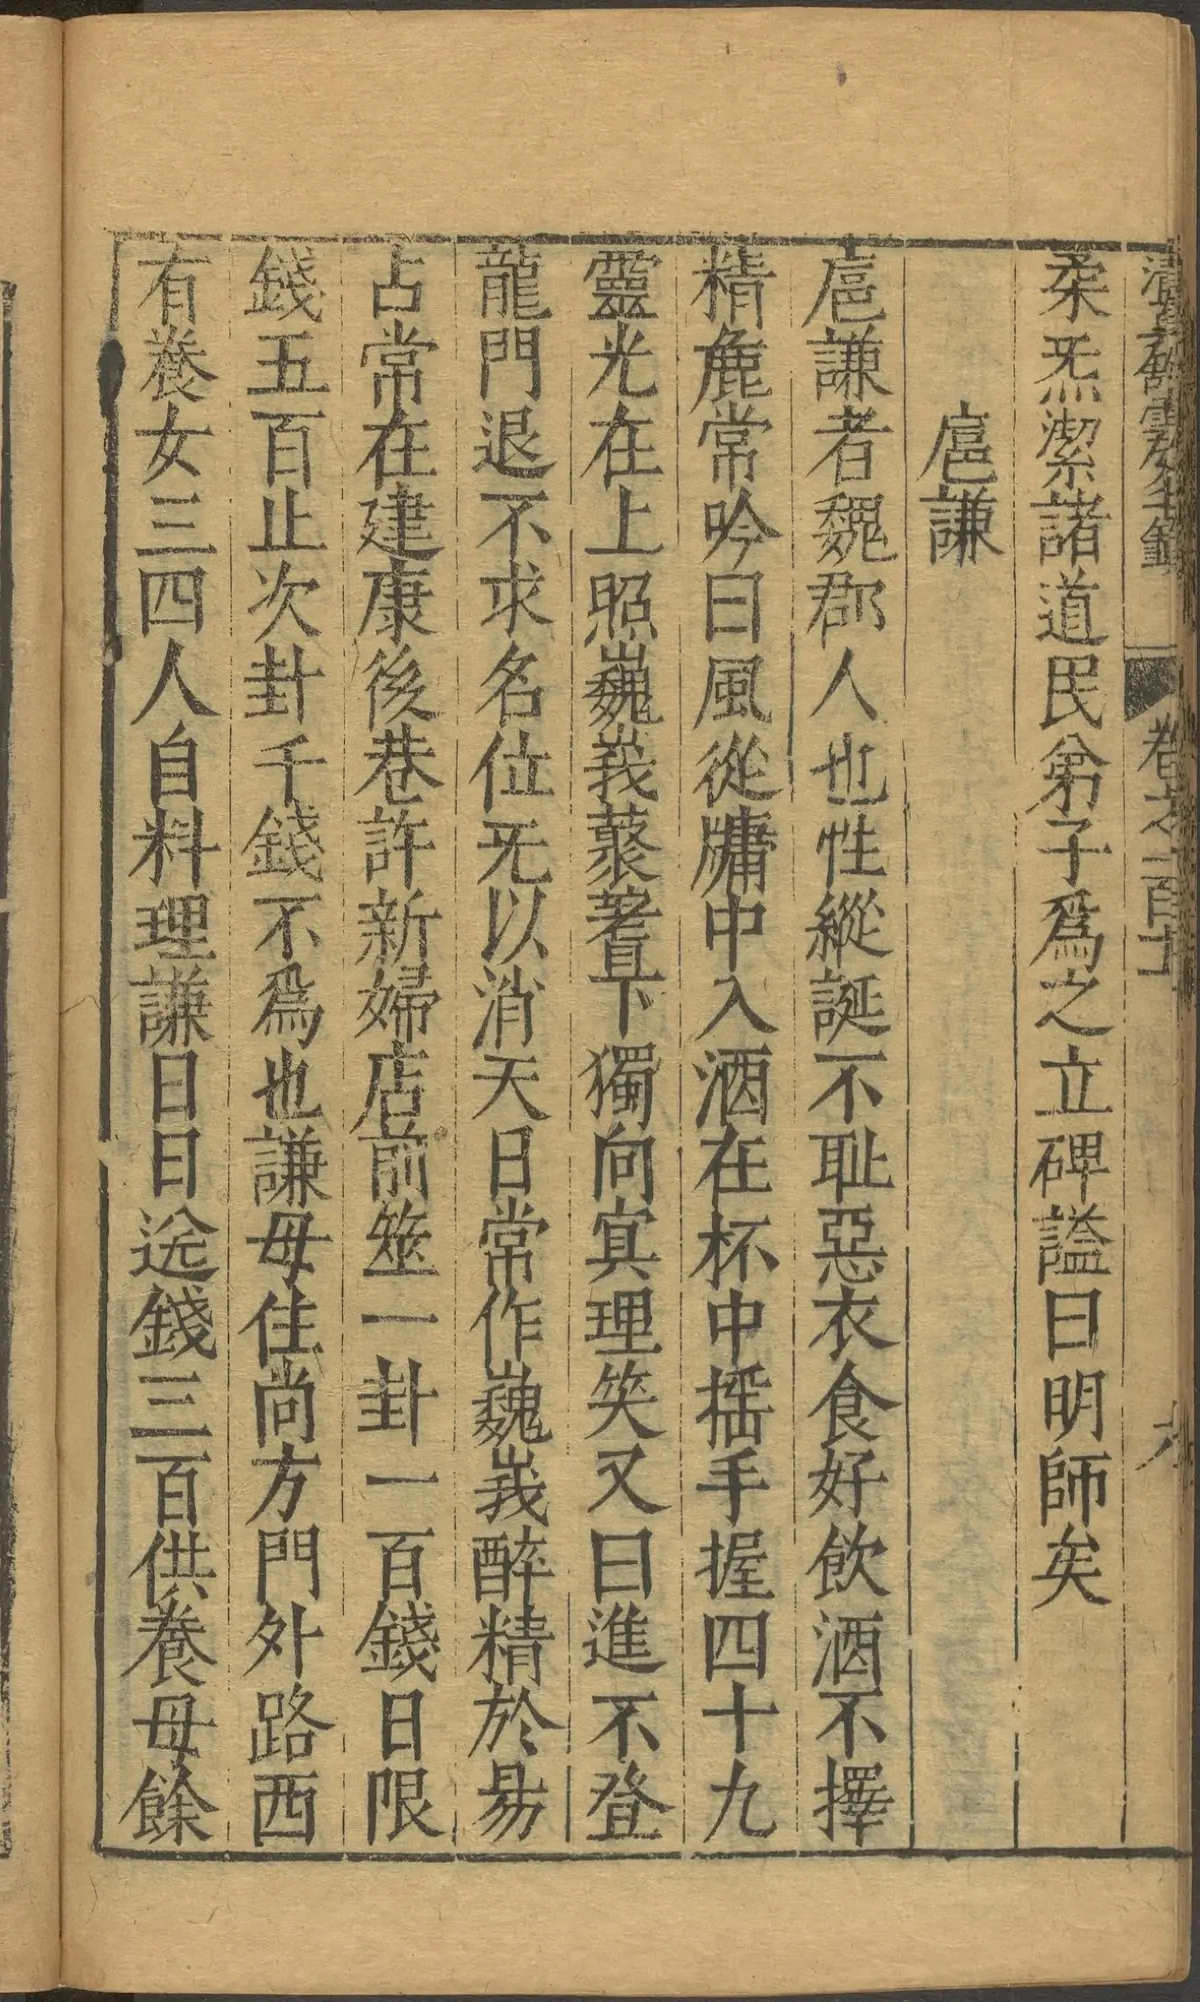 清真館雲笈七籤 卷之一百十 六
柔炁潔諸道民弟子爲之立碑謚曰明師矣
扈謙
扈謙者魏郡人也性縱誕不耻惡衣食好飲酒不擇
精麄常吟曰風從牖中入酒在杯中摇手握四十九
靈光在上照巍峩藂蓍下獨向冥理笑又曰進不登
龍門退不求名位无以消天日常作巍峩醉精於易
占常在建康後巷許新婦店前筮一卦一百錢日限
錢五百止次卦千錢不爲也謙母住尚方門外路西
有養女三四人自料理謙日日送錢三百供養母餘